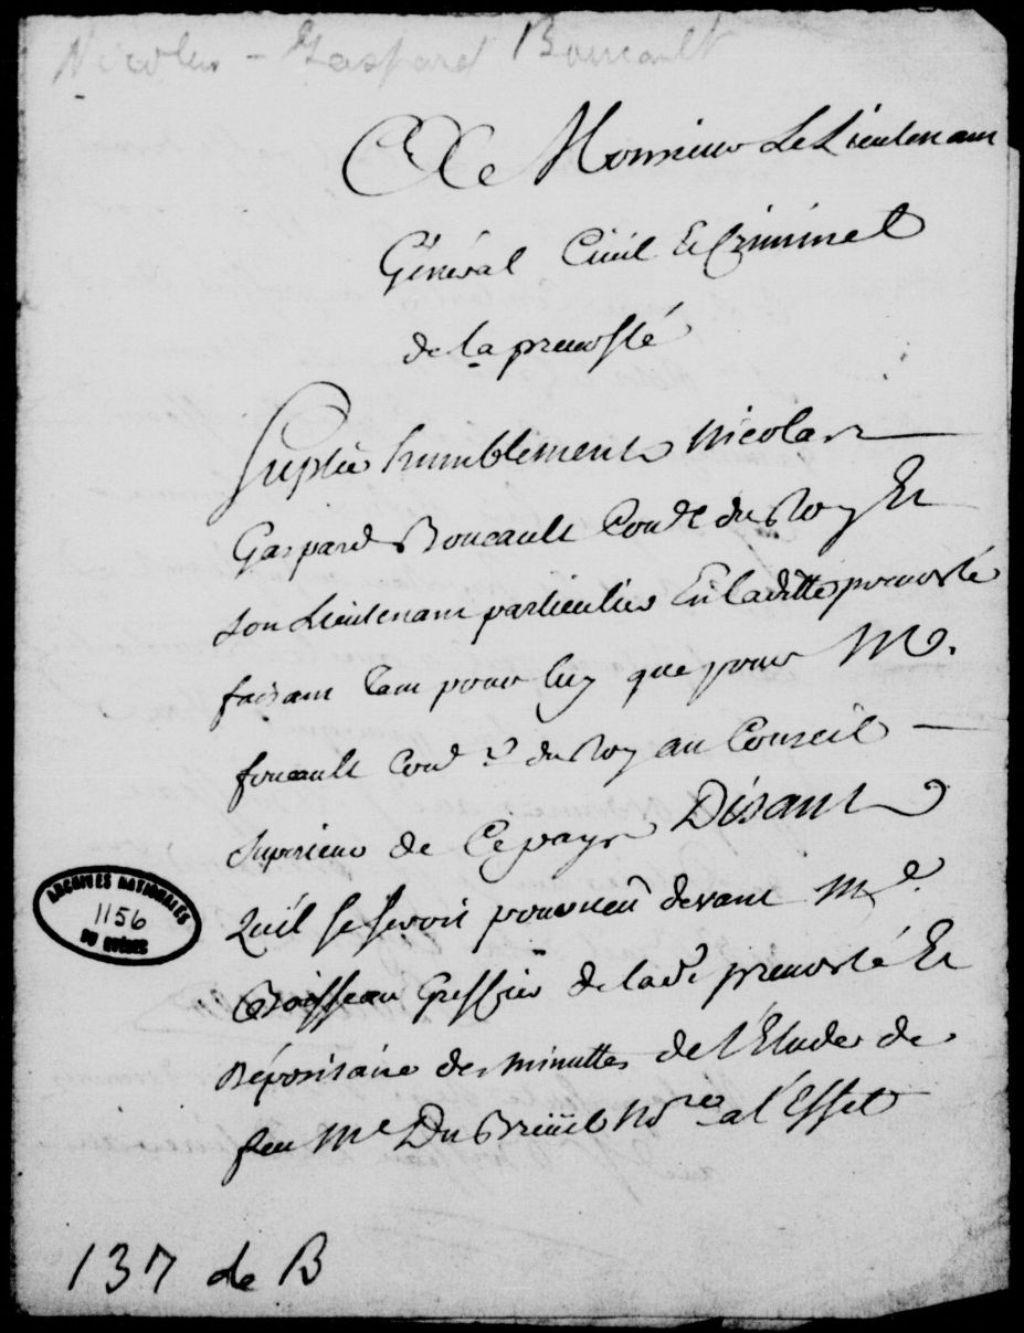 Nicolas - Gaspard Boucault
A Monsieur Le Lieutenant
Général Civil Et Criminel
de la prevosté
Suplie humblement Nicolas
Gaspard Boucault Cons.er du Roy Et
son Lieutenant particulier En laditte prevosté
faisant tant pour luy que pour M.
foucault Cons.er du Roy au Conseil
Superieur de Ce pays Disant
Qu'il Se Seroit pourveu devant Me
Boisseau Greffier de lad.e prevosté Et
Dépositaire des minuttes de l'Etude de
feu Me Du Breüil No.re a l'Effet
ARCHIVES NATIONALES
1156
DU QUÉBEC
137 de B